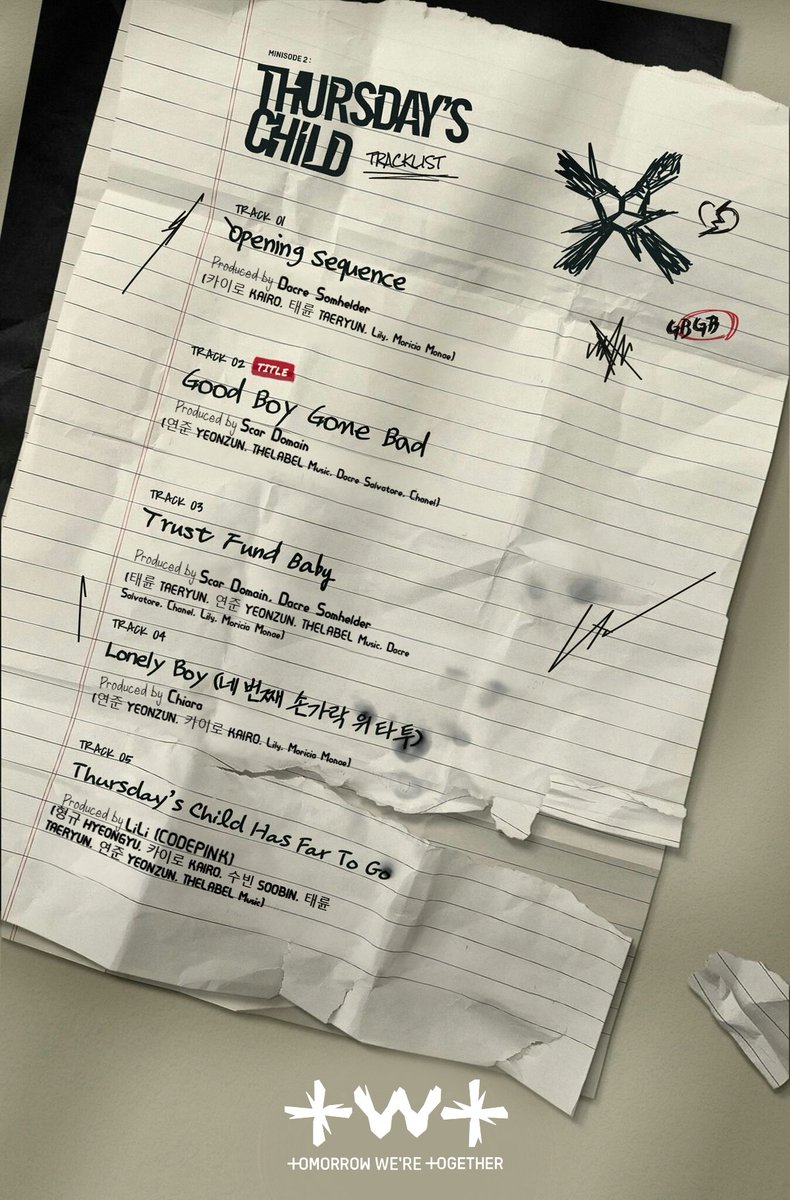 MINISODE 2:
THURSDAY'S
CHILD
TRACKLIST
TRACK 01
Opening Sequence
Produced by Dacre Somhelder
(카이로 KAIRO, 태륜 TAERYUN, Lily, Moricio Monae)
GBGB
TRACK 02 TITLE
Good Boy Gone Bad
Produced by Scar Domain
(연준 YEONZUN, THELABEL Music, Dacre Salvatore, Chanel)
TRACK 03
Trust Fund Baby
Produced by Scar Domain, Dacre Somhelder
(태륜 TAERYUN, 연준 YEONZUN, THELABEL Music, Dacre
Salvatore, Chanel, Lily, Moricio Monae)
TRACK 04
Lonely Boy (네 번째 손가락 위 타투)
Produced by Chiara
(연준 YEONZUN, 카이로 KAIRO, Lily, Moricio Monae)
TRACK 05
Thursday's Child Has Far To Go
Produced by LiLi (CODEPINK)
(형규 HYEONGYU, 카이로 KAIRO, 수빈 SOOBIN, 태륜
TAERYUN, 연준 YEONZUN, THELABEL Music)
TWT
TOMORROW WE'RE TOGETHER